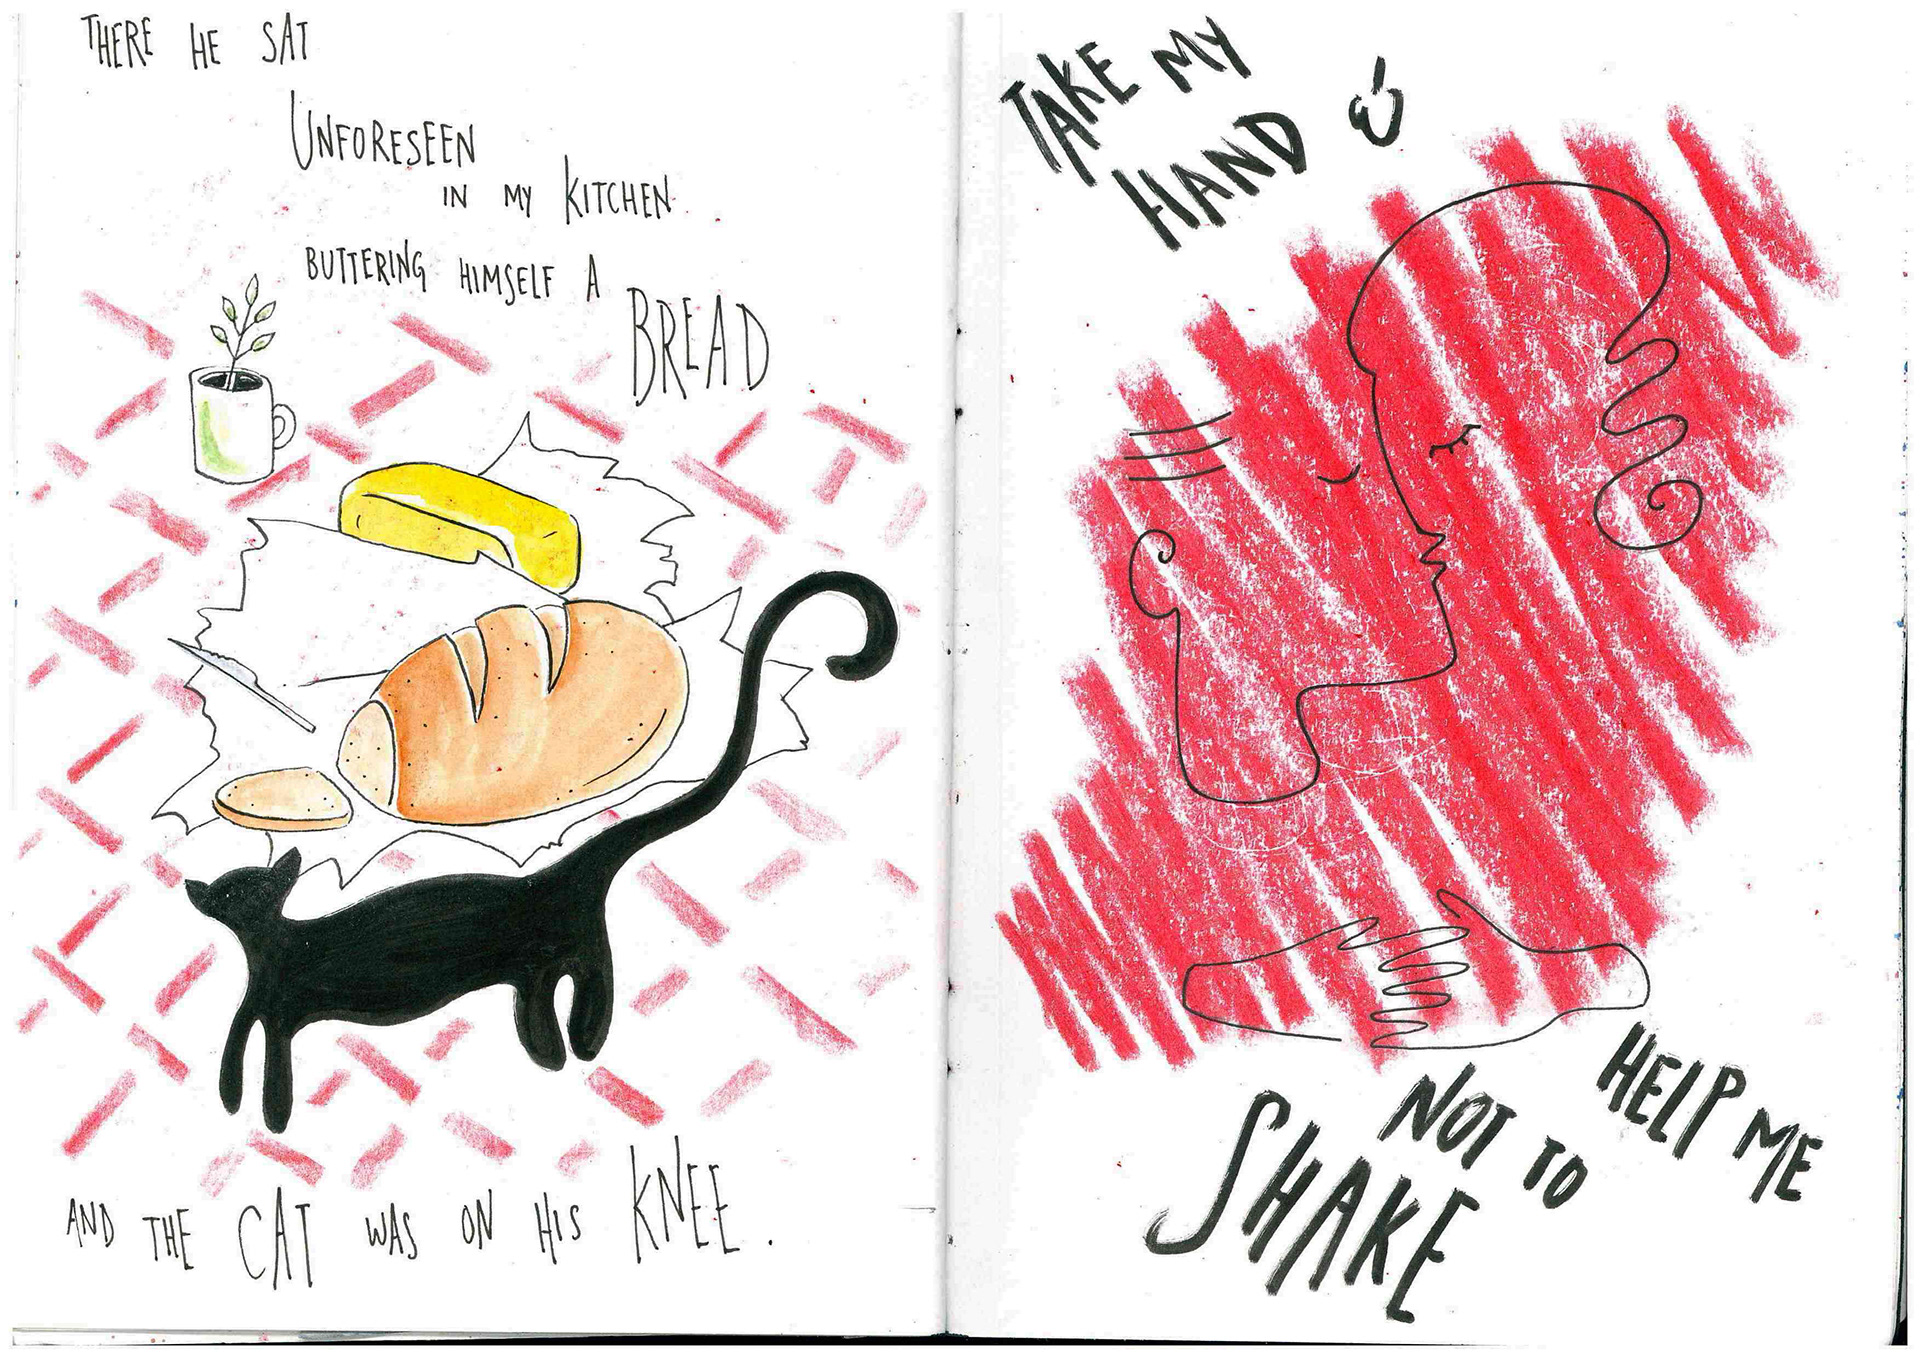 THERE HE SAT
UNFORESEEN
IN MY KITCHEN
BUTTERING HIMSELF A
BREAD
AND THE CAT WAS ON HIS KNEE.
TAKE MY
HAND &
HELP ME
NOT TO
SHAKE